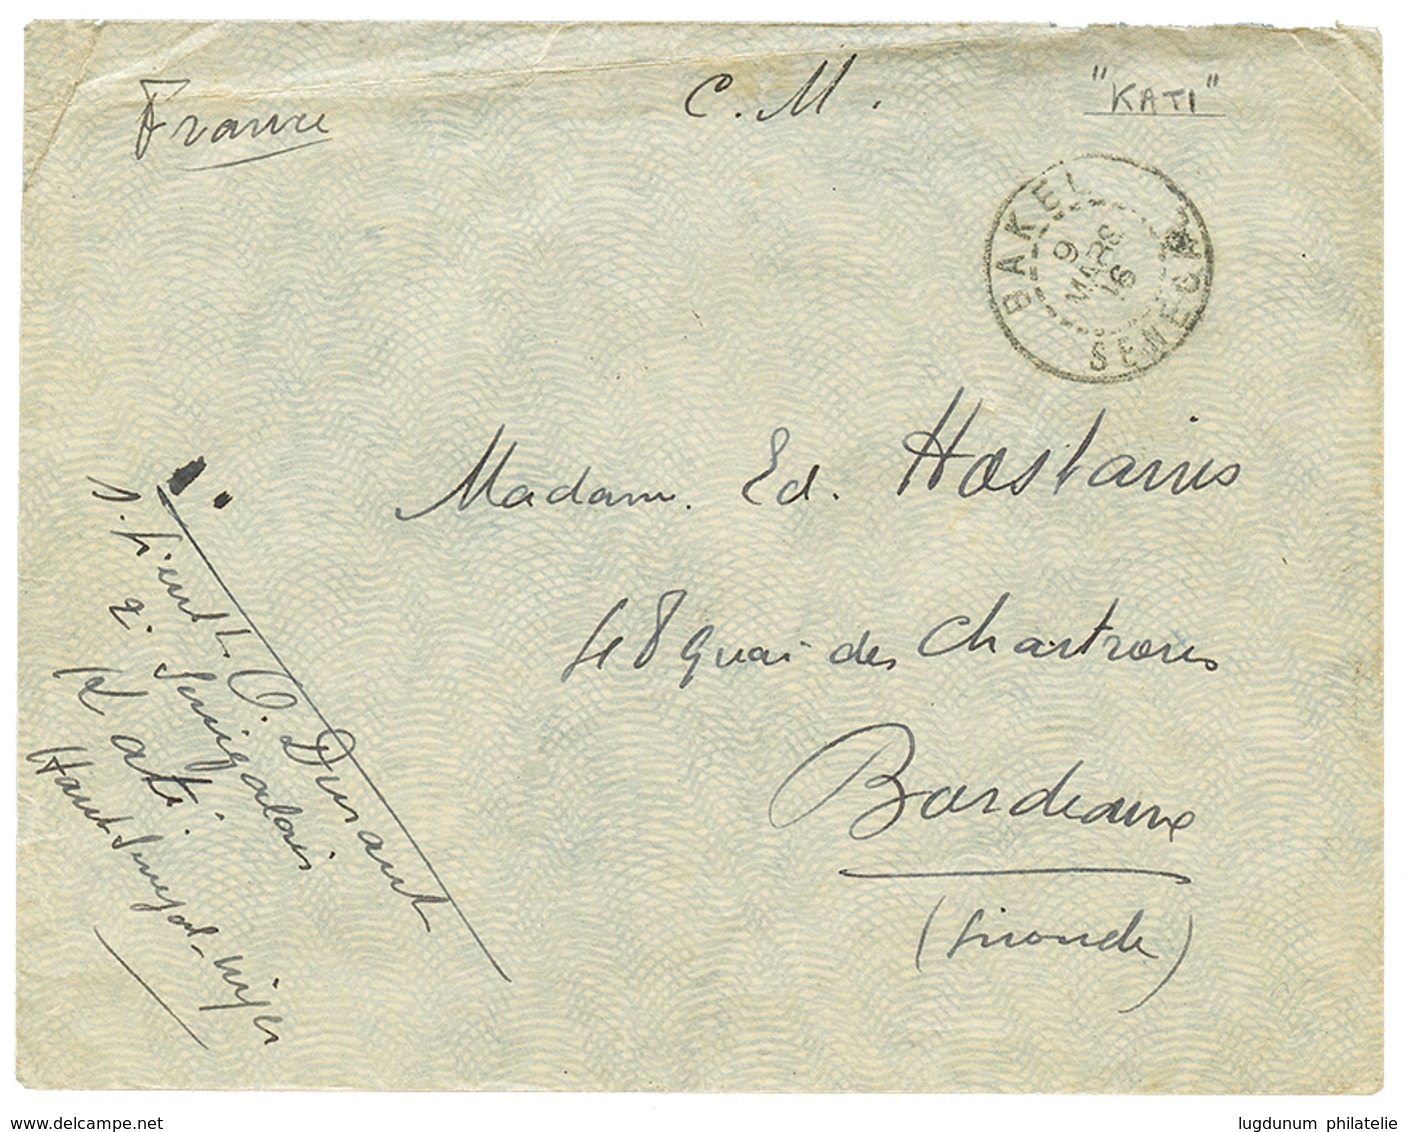 France
C. M.
"KATI"
BAKEL
9
MARS
16
SENEGAL
Madame Ed. Hostains
48 Quai des Chartrons
Bordeaux
(Gironde)
S. Lieut. O. Durand
2e Sénégalais
Kati.
Haut Sénégal-Niger
www.delcampe.net
lugdunum philatelie